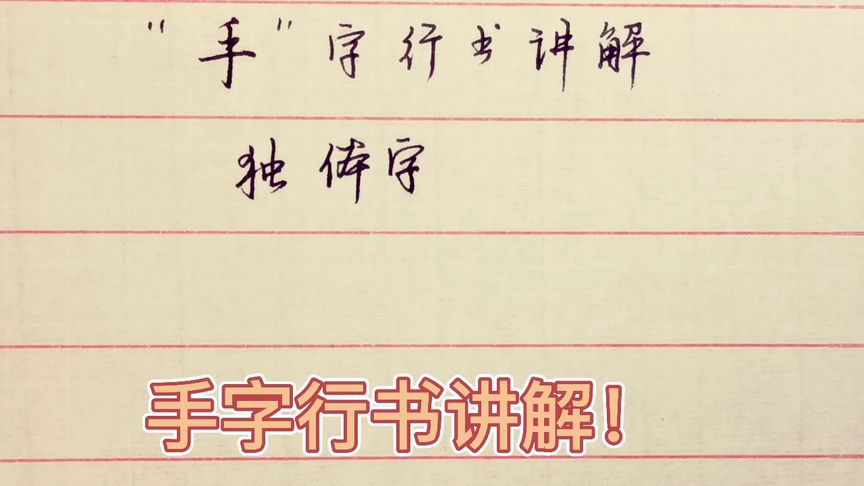 “手”字行书讲解
独体字
手字行书讲解！